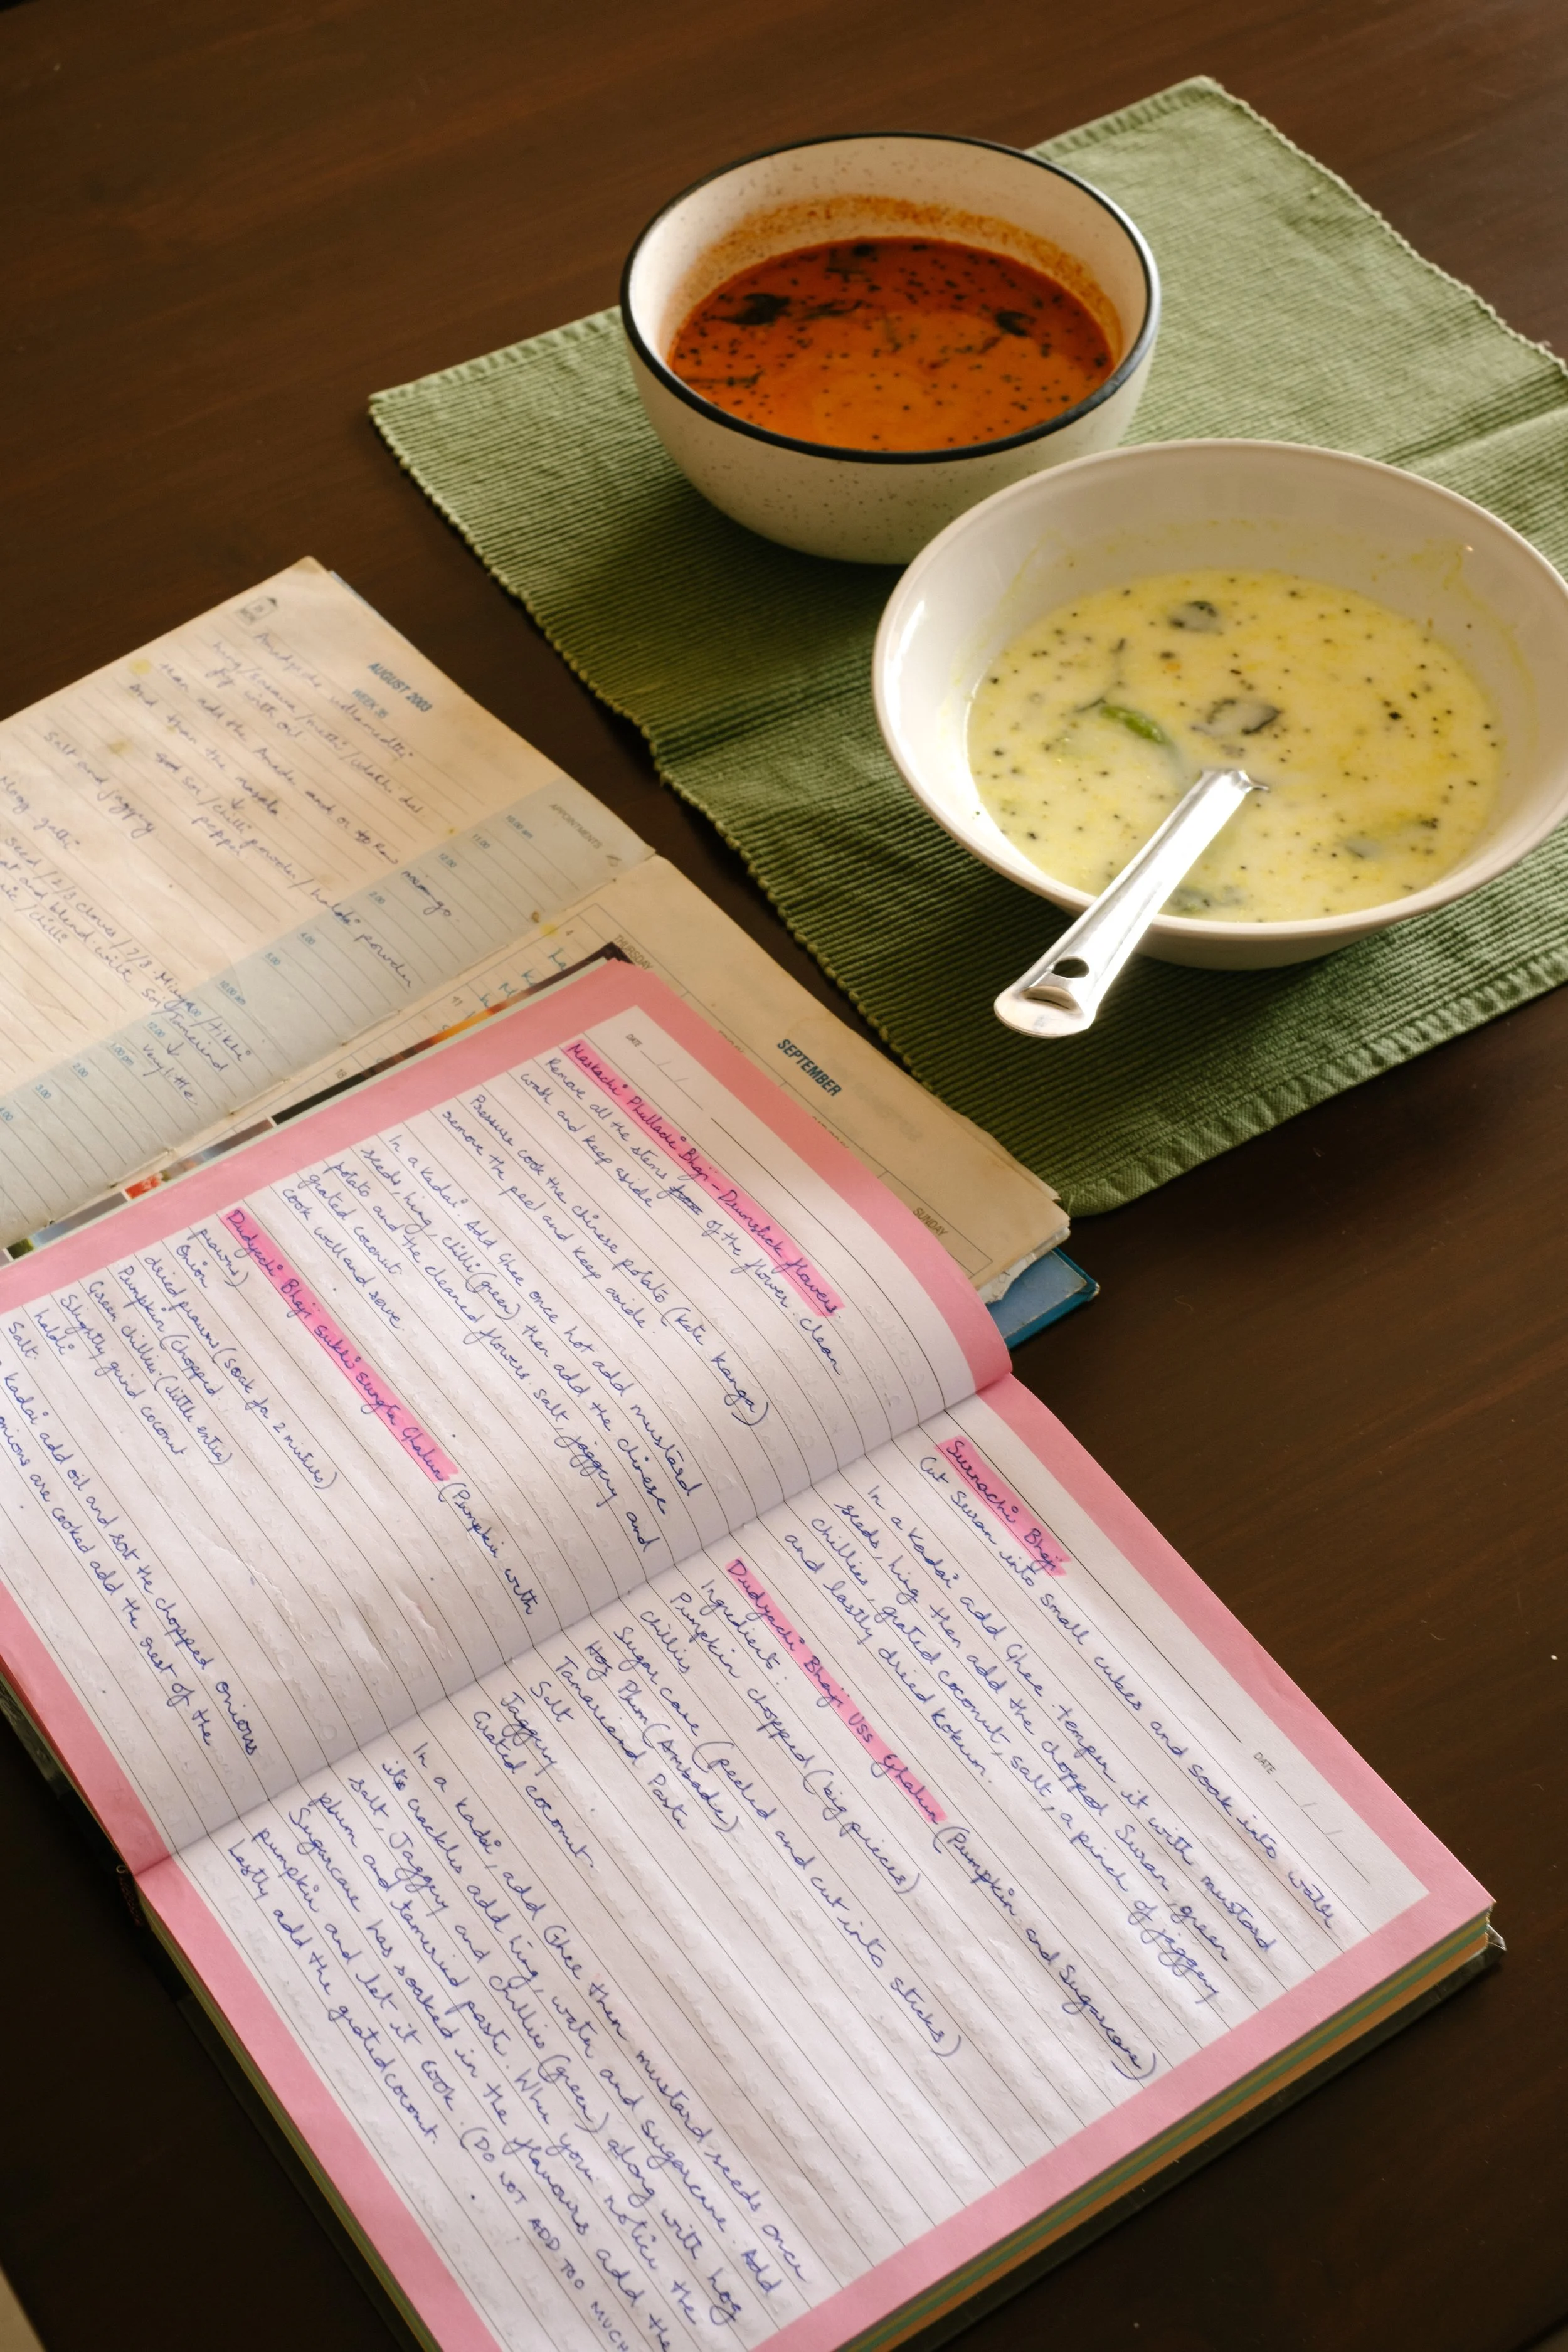 AUGUST 2003
WEEK 35
fry with oil
then add the
and then the masala
powder / haldi powder
Salt and jaggery
APPOINTMENTS
10.00 am
11.00
12.00
2.00
4.00
5.00
10.00 am
12.00
1.00 pm
2.00
3.00
4.00
very little.
THURSDAY
4
11
18
SEPTEMBER
SUNDAY
DATE
Maskachi Phulladi Bhaji - Drumstick flowers.
Remove all the stems from of the flower. clean
wash and keep aside
Pressure cook the chinese potato (Kate Kanga)
remove the peel and keep aside.
In a Kadai Add Ghee once hot add mustard
seeds, hing, chilli (green) then add the chinese
potato and the cleaned flowers. salt, jaggery and
grated coconut.
cook well and serve.
Dudyachi Bhaji sukhi sungta Ghalun (Pumpkin with
prawns)
Onion
dried prawns (soak for 2 mintues)
Pumpkin (chopped.
Green chillies (little extra)
Slightly grind coconut
haldi
Salt.
kadai add oil and sort the chopped onions
onions are cooked add the rest of the
DATE
Surnachi Bhaji
Cut Suran into small cubes and soak into water
In a Kadai add Ghee. temper it with mustard
seeds, hing then add the chopped Suran, green
chillies, grated coconut, salt, a pinch of jaggery
and lastly dried kokum.
Dudyachi Bhaji Uss Ghalun (Pumpkin and Sugarcane)
Ingredients:
Pumpkin chopped (big pieces)
chillies
Sugar cane (peeled and cut into sticks)
Hog Plum (Ambade)
Tamarind Paste
Salt
Jaggery
Grated coconut.
In a Kadai, add Ghee then mustard seeds once
its crackles add hing, water and sugarcane. Add
salt, Jaggery and chillies (green) along with hog
plum and tamarind paste. When you notice the
Sugarcane has soaked in the flavours add the
pumpkin and let it cook. (DO NOT ADD TOO MUCH
Lastly add the grated coconut.